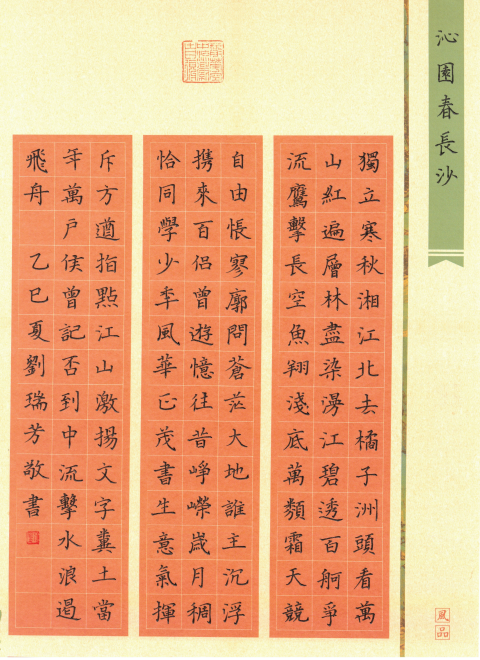 沁園春長沙
獨立寒秋湘江北去橘子洲頭看萬
山紅遍層林盡染漫江碧透百舸爭
流鷹擊長空魚翔淺底萬類霜天競
自由悵寥廓問蒼茫大地誰主沉浮
携來百侶曾遊憶往昔崢嶸歲月稠
恰同學少年風華正茂書生意氣揮
斥方遒指點江山激揚文字糞土當
年萬戶侯曾記否到中流擊水浪遏
飛舟 乙巳夏劉瑞芳敬書